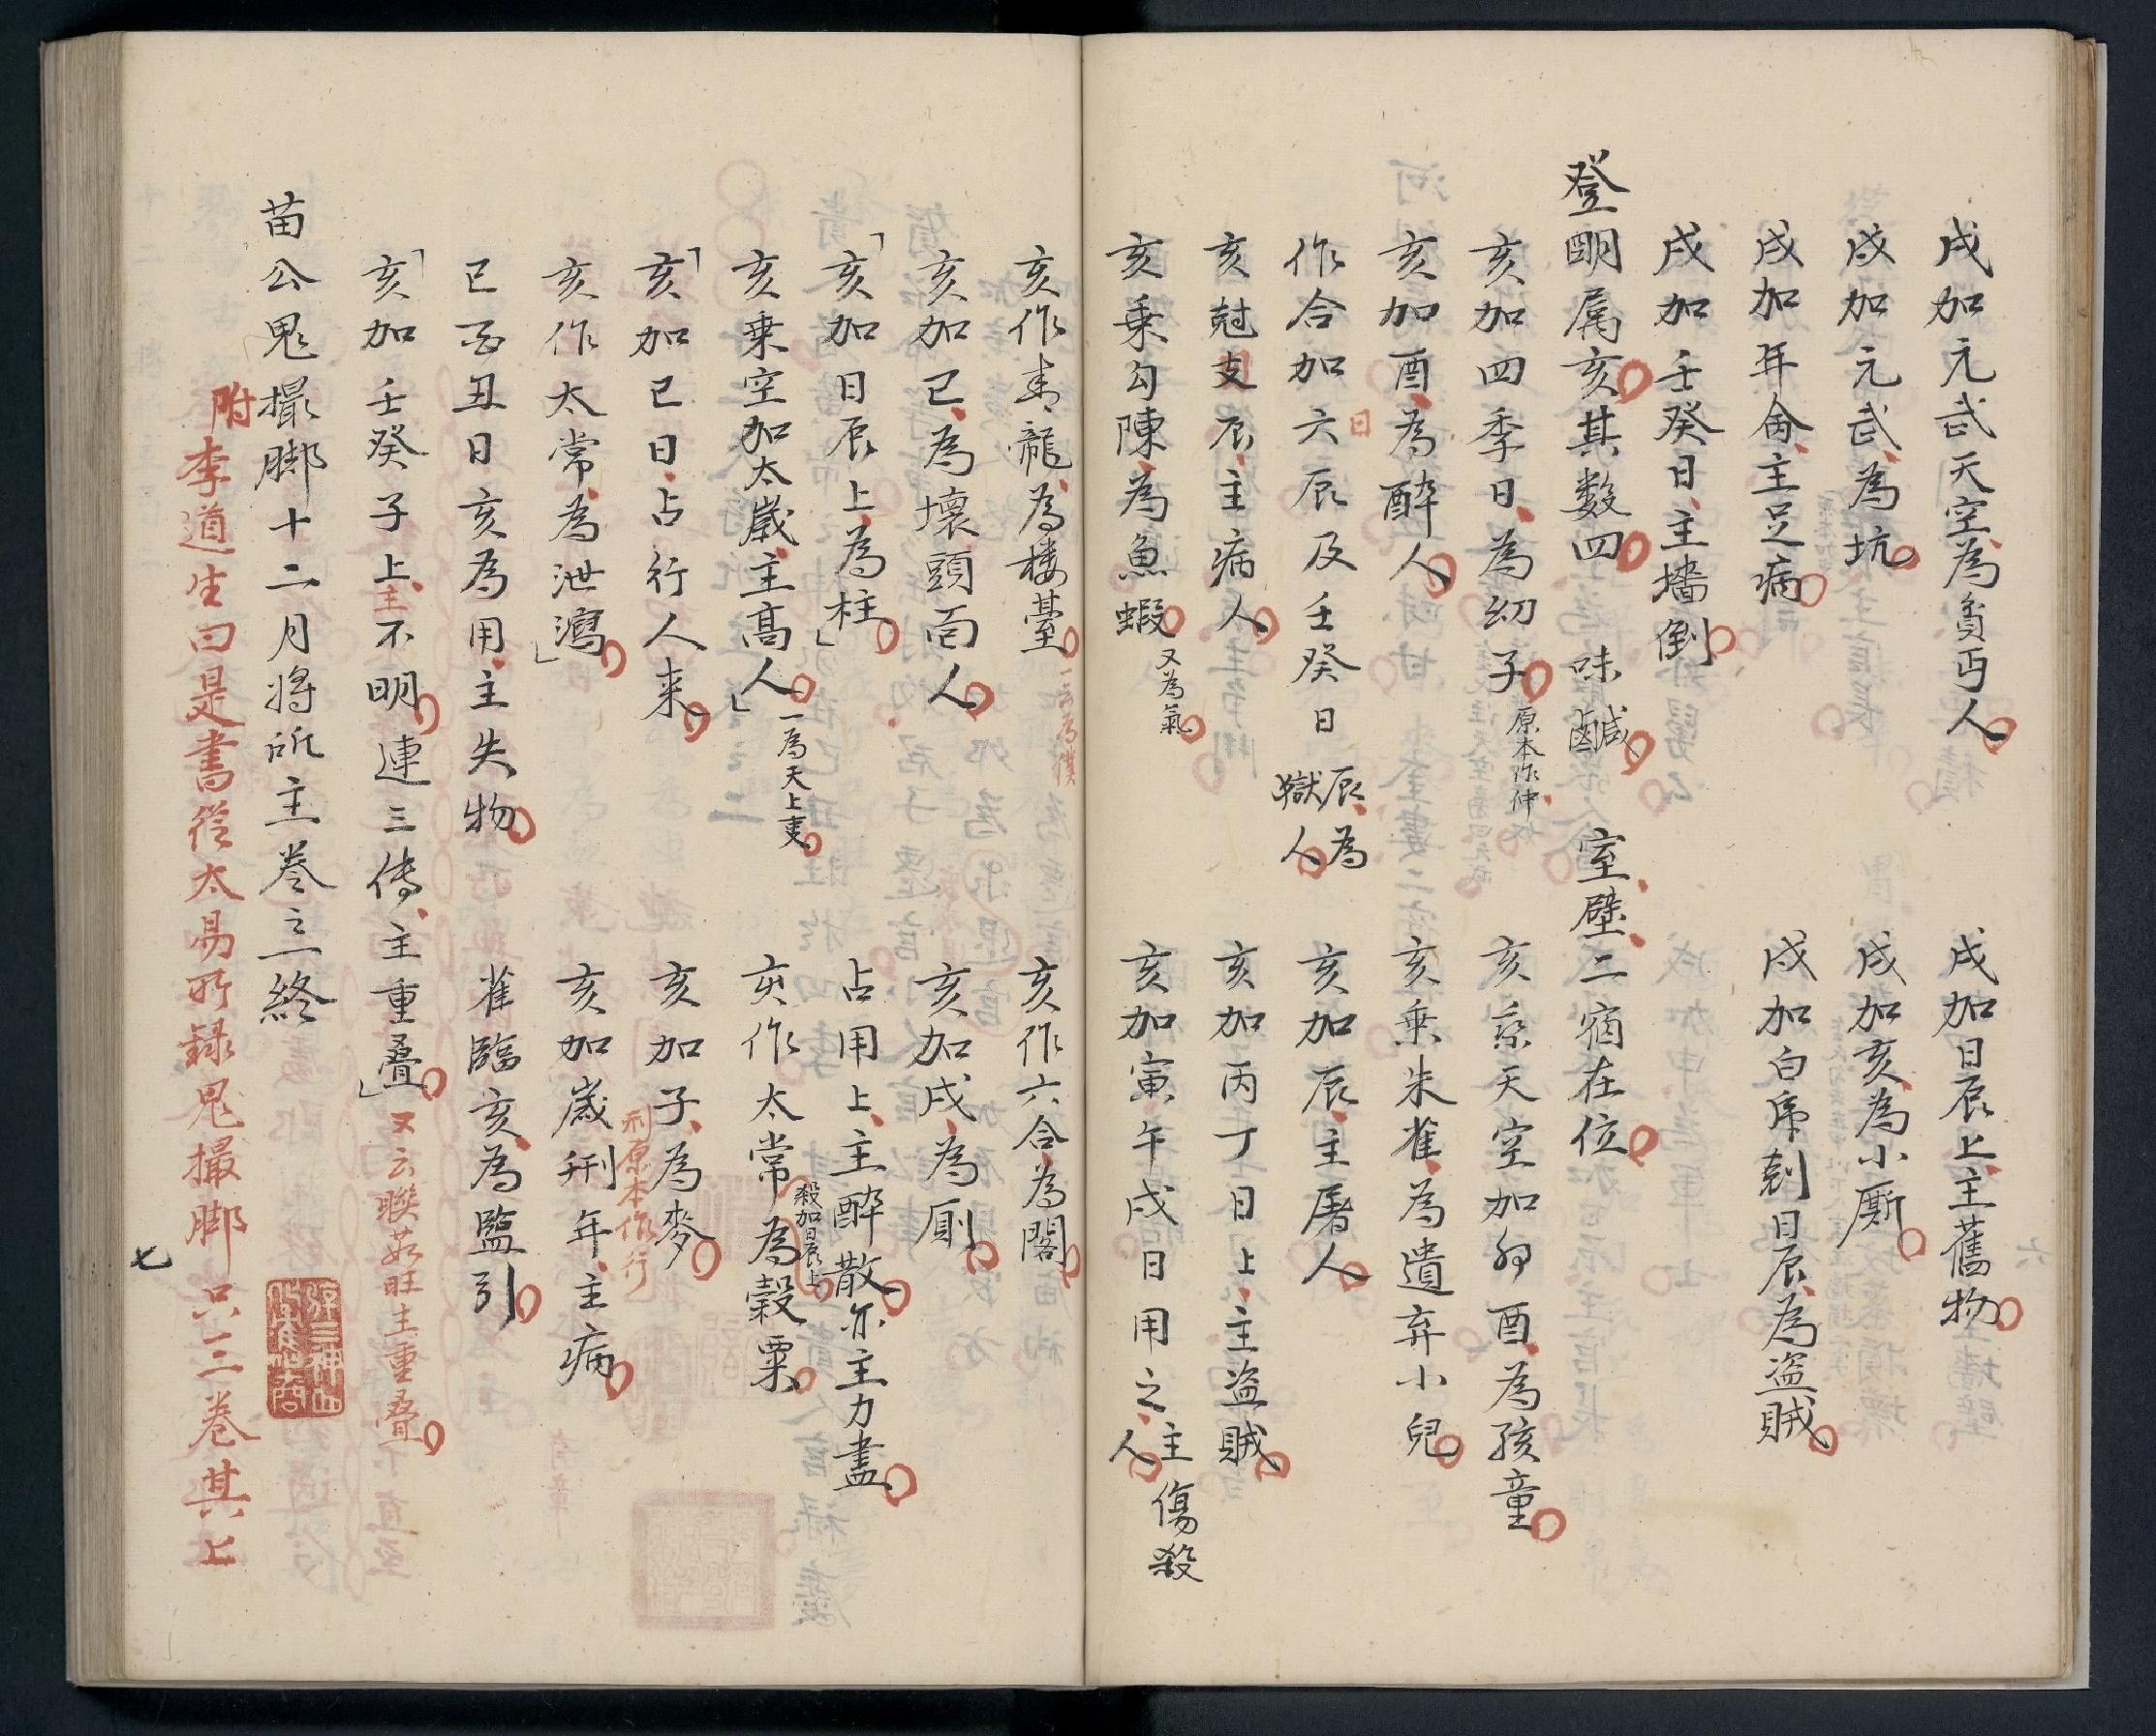 戌加元武天空為貧丐人　戌加日辰上主舊物
戌加元武為坑　戌加亥為小厮
戌加年命主足病　戌加白虎剋日辰為盗賊
戌加壬癸日主墻倒
登明属亥其數四　味鹹　室壁二宿在位
亥加四季日為幼子原本作仲　亥乘天空加卯酉為孩童
亥加酉為醉人　亥乘朱雀為遺弃小兒
作合加六辰及壬癸日辰為獄人　亥加辰主屠人
日
亥尅支辰主病人　亥加丙丁日上主盗賊
亥乗勾陳為魚蝦又為氣　亥加寅午戌日用之主傷殺人
亥作青龍為楼臺一云為樸　亥作六合為閣
亥加已為壞頭面人　亥加戌為厠
亥加日辰上為柱　占用上主醉散亦主力盡
亥乗空加太歲主髙人一為天上吏　亥作太常殺加日辰上為穀粟
亥加已日占行人来　亥加子為麥
刑原本作行
亥作太常為泄瀉　亥加歲刑年主病
已酉丑日亥為用主失物　雀臨亥為監引
亥加壬癸子上主不明連三傳主重疊又云聯茹旺主重疊
苗公鬼撮脚十二月將所主卷之一終
附李道生曰是書從太易所録鬼撮脚只三卷其上
七